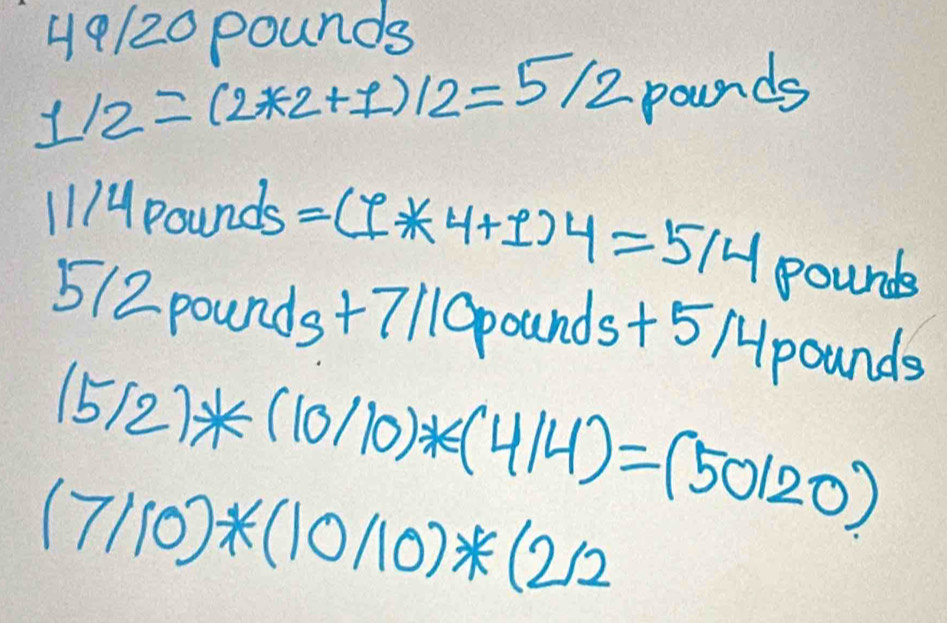 49/20 pounds
1/2=(2*2+1)/2=5/2 pounds
11/4 pounds=(1*4+1)4=5/4 pounds
5/2 pounds+7/10pounds+5/4pounds
(5/2)*(10/10)*(4/4)=(50/20)
(7/10)*(10/10)*(2/2